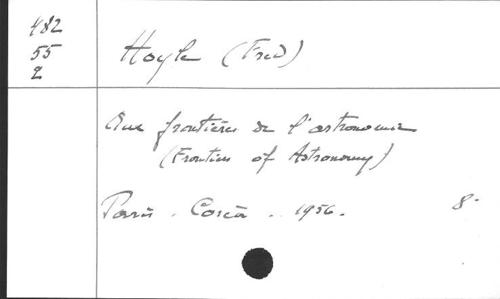 482
55
2
Hoyle (Fred)
Aux frontières de l'astronomie
(Frontiers of Astronomy)
Paris. Corrêa .. 1956. 8°